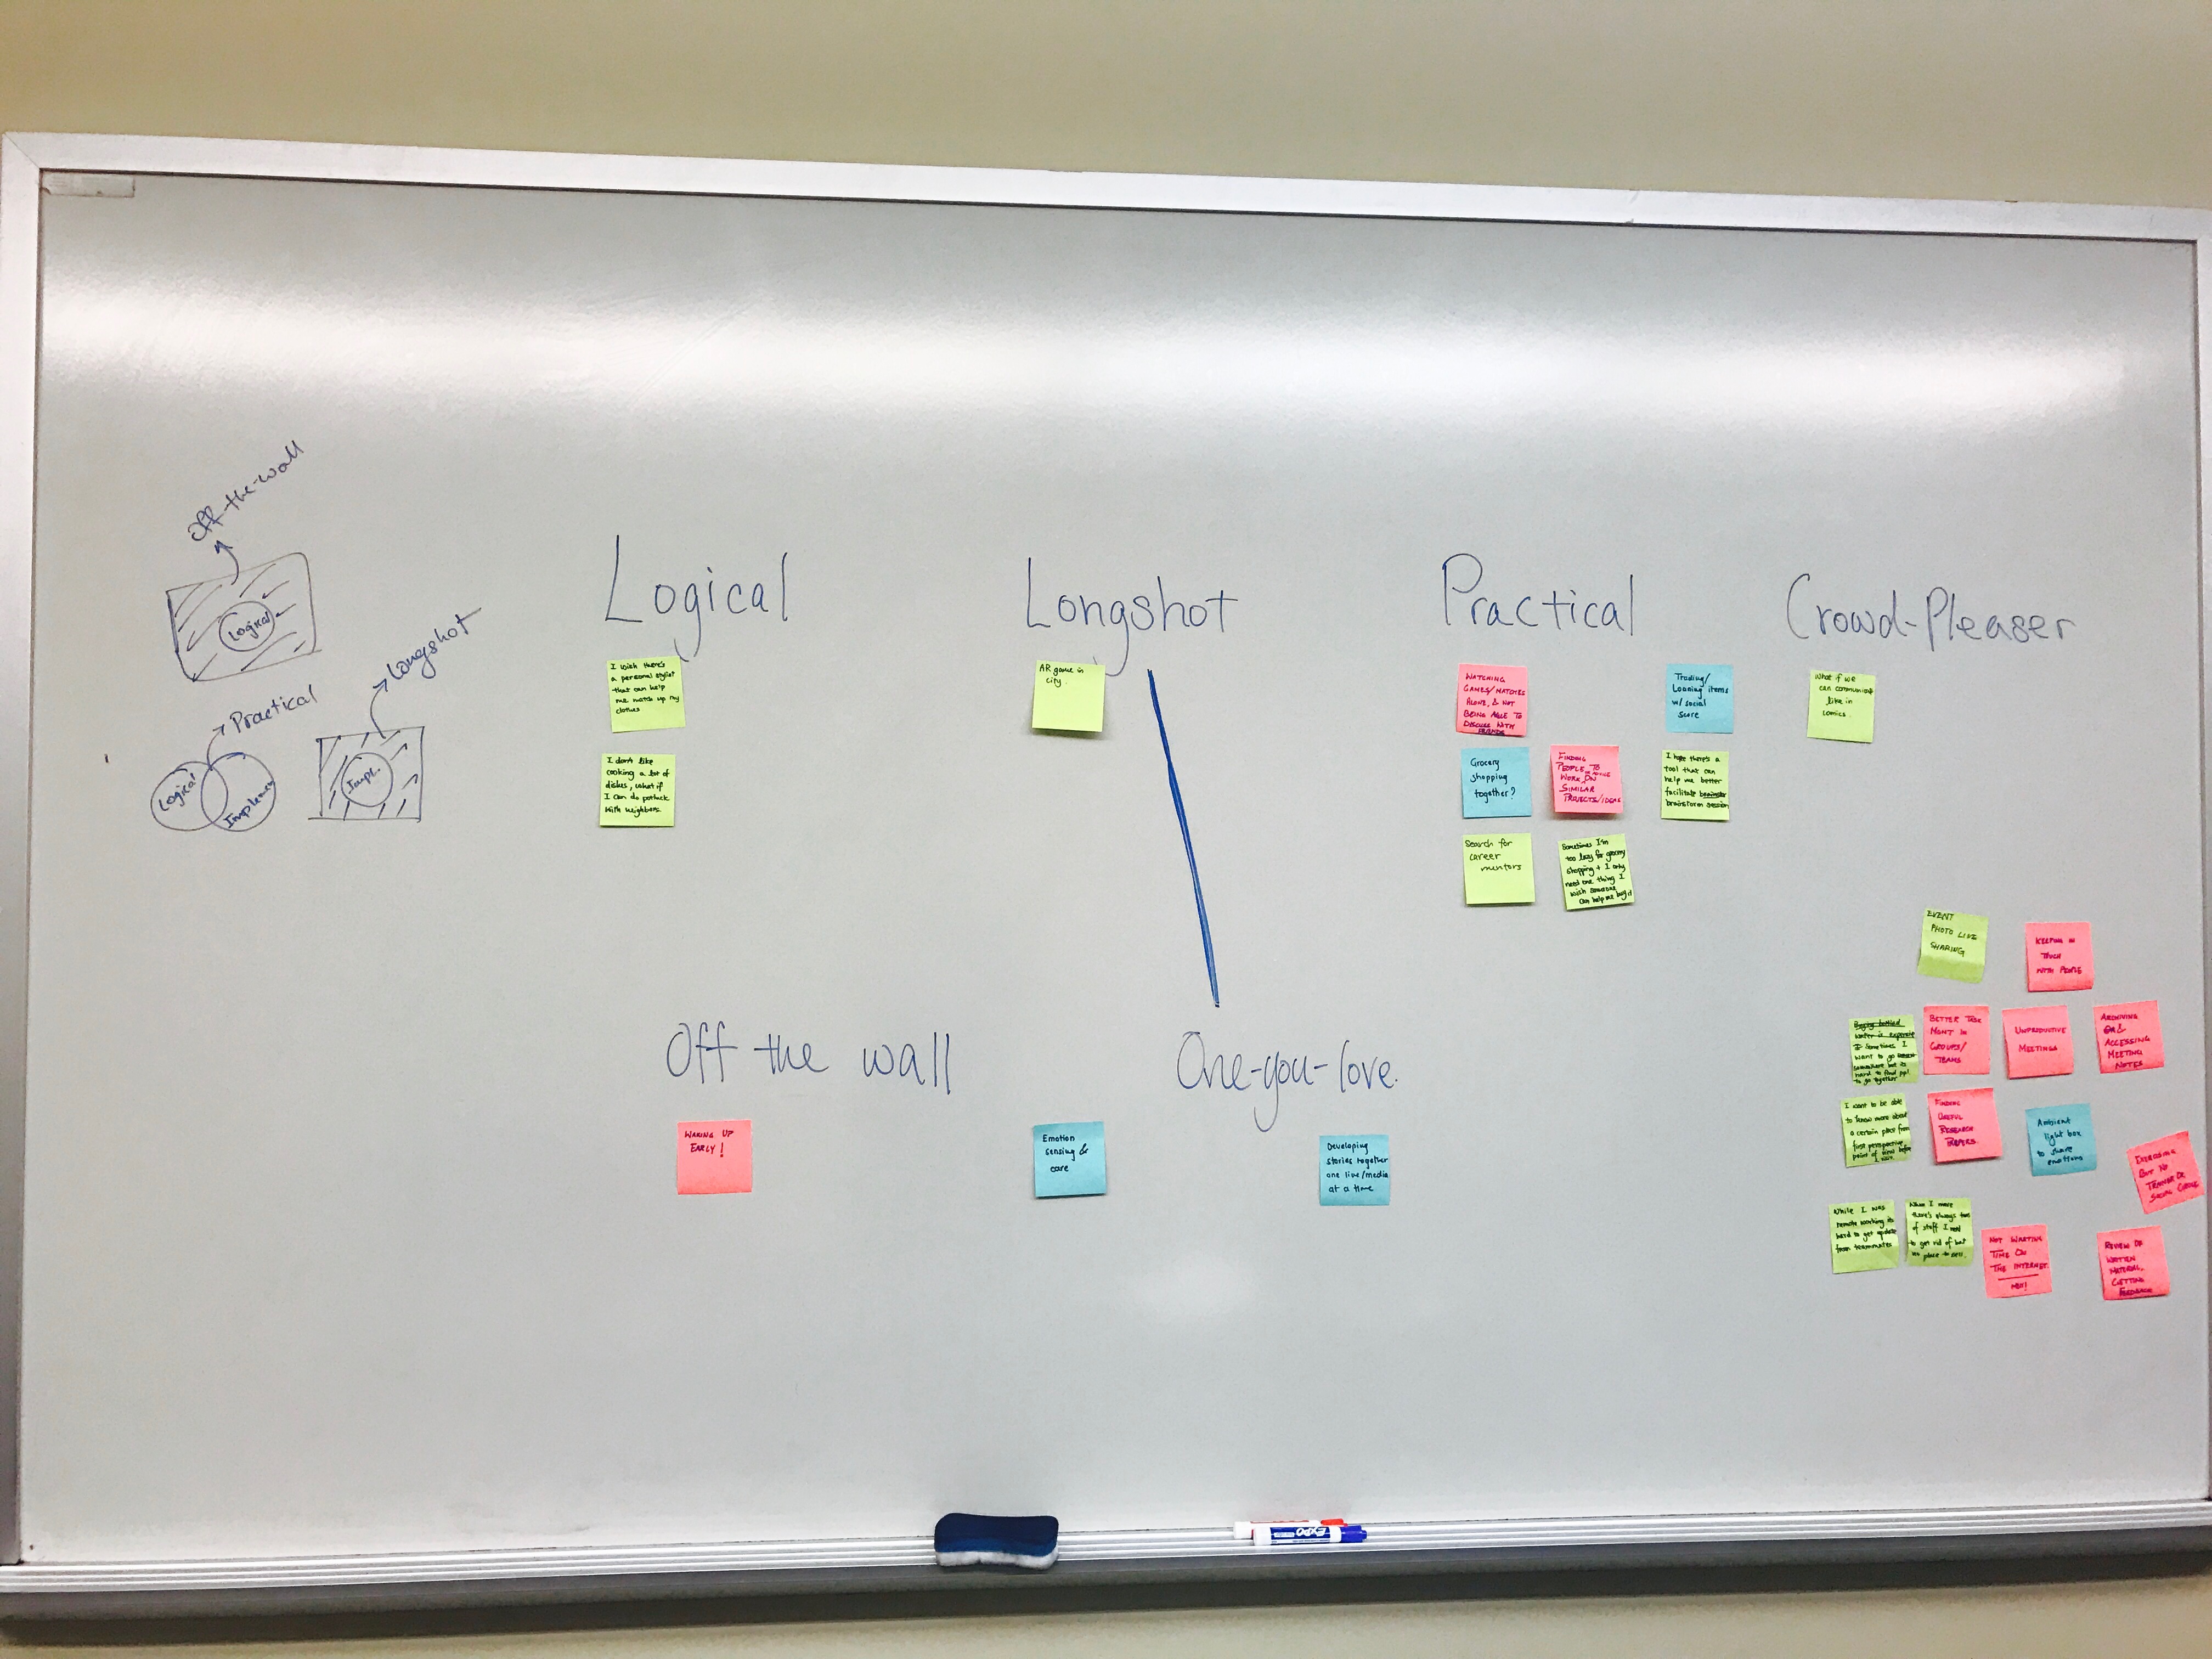 Off-the-wall
Logical
Longshot
Practical
Logical
Impl.
Logical
Longshot
Practical
Crowd-Pleaser
I wish there's
a personal stylist
that can help
me match up my
clothes
I don't like
cooking a lot of
dishes, what if
I can do potluck
with neighbors.
AR game in
city.
WATCHING
GAMES/MATCHES
ALONE, & NOT
BEING ABLE TO
DISCUSS WITH
FRIENDS
Trading/
Loaning items
w/ social
score
Grocery
shopping
together?
FINDING
PEOPLE TO
WORK ON
SIMILAR
PROJECTS/IDEAS
I hope there's a
tool that can
help me better
facilitate
brainstorm session
Search for
career
mentors
Sometimes I'm
too lazy for grocery
shopping & I only
need one thing I
wish someone
can help me buy it
What if we
can communicate
like in
comics.
EVENT
PHOTO LIVE
SHARING
KEEPING IN
TOUCH
WITH PEOPLE
Buying bottled
water is expensive
Sometimes I
want to go
somewhere but its
hard to find ppl
to go together
BETTER TASK
MGMT IN
GROUPS/
TEAMS
UNPRODUCTIVE
MEETINGS
ARCHIVING
&
ACCESSING
MEETING
NOTES
I want to be able
to know more about
a certain place from
first perspective
point of view before
FINDING
USEFUL
RESEARCH
PAPERS.
Ambient
light box
to share
emotions
EXERCISING
BUT NO
TRAINER OR
SOCIAL CIRCLE
While I was
remote working its
hard to get update
from teammates
When I move
there's always
of stuff I need
to get rid of but
no place to sell.
NOT WASTING
TIME ON
THE INTERNET
REVIEW OF
WRITTEN
MATERIAL,
GETTING
FEEDBACK
Off the wall
One-you-love.
WAKING UP
EARLY!
Emotion
sensing &
care
Developing
stories together
one line/media
at a time
EXPO